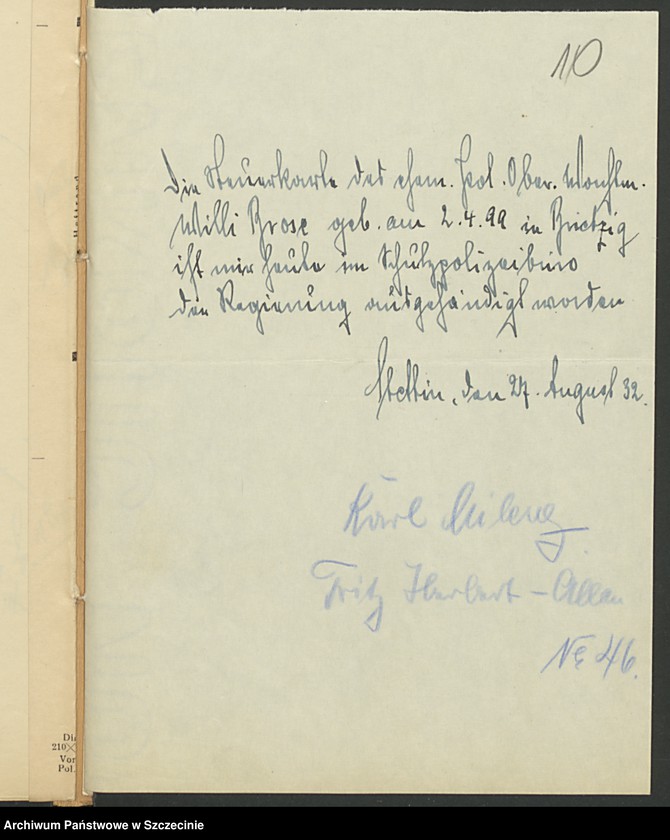 10
Die Steuerkarte des ehem. Pol. Ober. Wachtm.
Willi Brose geb. am 2.4.99 in Brietzig
ist mir heute im Schutzpolizeibüro
der Regierung ausgehändigt worden
Stettin, den 27. August 32.
Karl
Fritz Herbert - Allee
No 46.
Di
210
Vor
Pol.
Archiwum Państwowe w Szczecinie